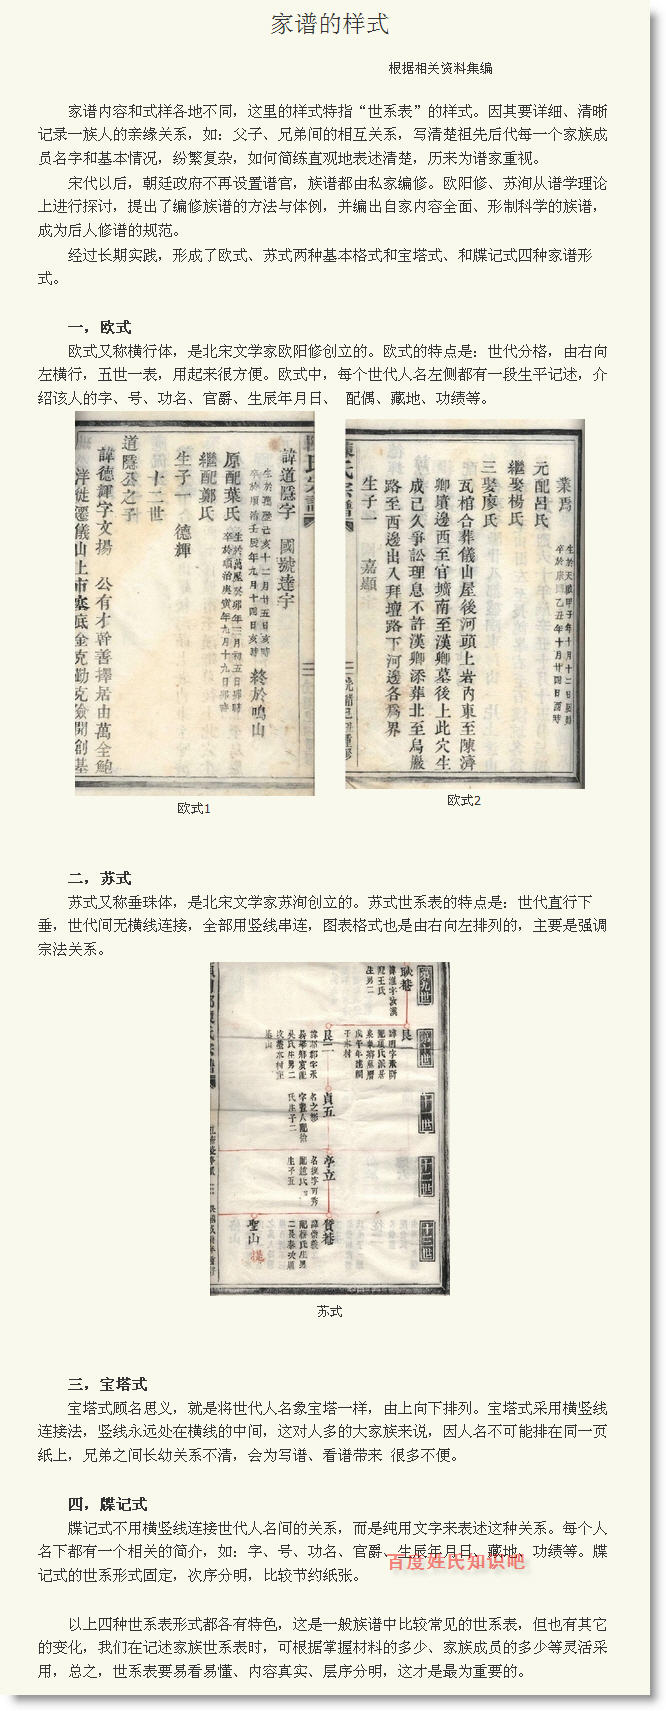 家谱的样式
根据相关资料集编
家谱内容和式样各地不同，这里的样式特指“世系表”的样式。因其要详细、清晰
记录一族人的亲缘关系，如：父子、兄弟间的相互关系，写清楚祖先后代每一个家族成
员名字和基本情况，纷繁复杂，如何简练直观地表述清楚，历来为谱家重视。
宋代以后，朝廷政府不再设置谱官，族谱都由私家编修。欧阳修、苏洵从谱学理论
上进行探讨，提出了编修族谱的方法与体例，并编出自家内容全面、形制科学的族谱，
成为后人修谱的规范。
经过长期实践，形成了欧式、苏式两种基本格式和宝塔式、和牒记式四种家谱形
式。
一，欧式
欧式又称横行体，是北宋文学家欧阳修创立的。欧式的特点是：世代分格，由右向
左横行，五世一表，用起来很方便。欧式中，每个世代人名左侧都有一段生平记述，介
绍该人的字、号、功名、官爵、生辰年月日、 配偶、藏地、功绩等。
諱道隱字 國號達宇
原配葉氏
繼配鄭氏
終於鳴山
生子一 德輝
十二世
道隱公之子
諱德輝字文揚 公有才幹善擇居由萬全鮑
洋徙遷儀山上市寨底金克勤克儉開創基
欧式1
業焉
元配呂氏
繼娶楊氏
三娶廖氏
瓦棺合葬儀山屋後河頭上岩內東至陳濟
卿墳邊西至官墳南至漢卿墓後上此穴生
成己久爭訟理息不許漢卿添葬北至烏巖
路至西邊出入拜壇路下河邊各爲界
生子一 嘉顯
欧式2
二，苏式
苏式又称垂珠体，是北宋文学家苏洵创立的。苏式世系表的特点是：世代直行下
垂，世代间无横线连接，全部用竖线串连，图表格式也是由右向左排列的，主要是强调
宗法关系。
第九世
十一世
十二世
十三世
艮一
艮二
貞五
亭立
聖山
苏式
三，宝塔式
宝塔式顾名思义，就是将世代人名象宝塔一样，由上向下排列。宝塔式采用横竖线
连接法，竖线永远处在横线的中间，这对人多的大家族来说，因人名不可能排在同一页
纸上，兄弟之间长幼关系不清，会为写谱、看谱带来 很多不便。
四，牒记式
牒记式不用横竖线连接世代人名间的关系，而是纯用文字来表述这种关系。每个人
名下都有一个相关的简介，如：字、号、功名、官爵、生辰年月日、藏地、功绩等。牒
记式的世系形式固定，次序分明，比较节约纸张。
百度姓氏知识吧
以上四种世系表形式都各有特色，这是一般族谱中比较常见的世系表，但也有其它
的变化，我们在记述家族世系表时，可根据掌握材料的多少、家族成员的多少等灵活采
用，总之，世系表要易看易懂、内容真实、层序分明，这才是最为重要的。